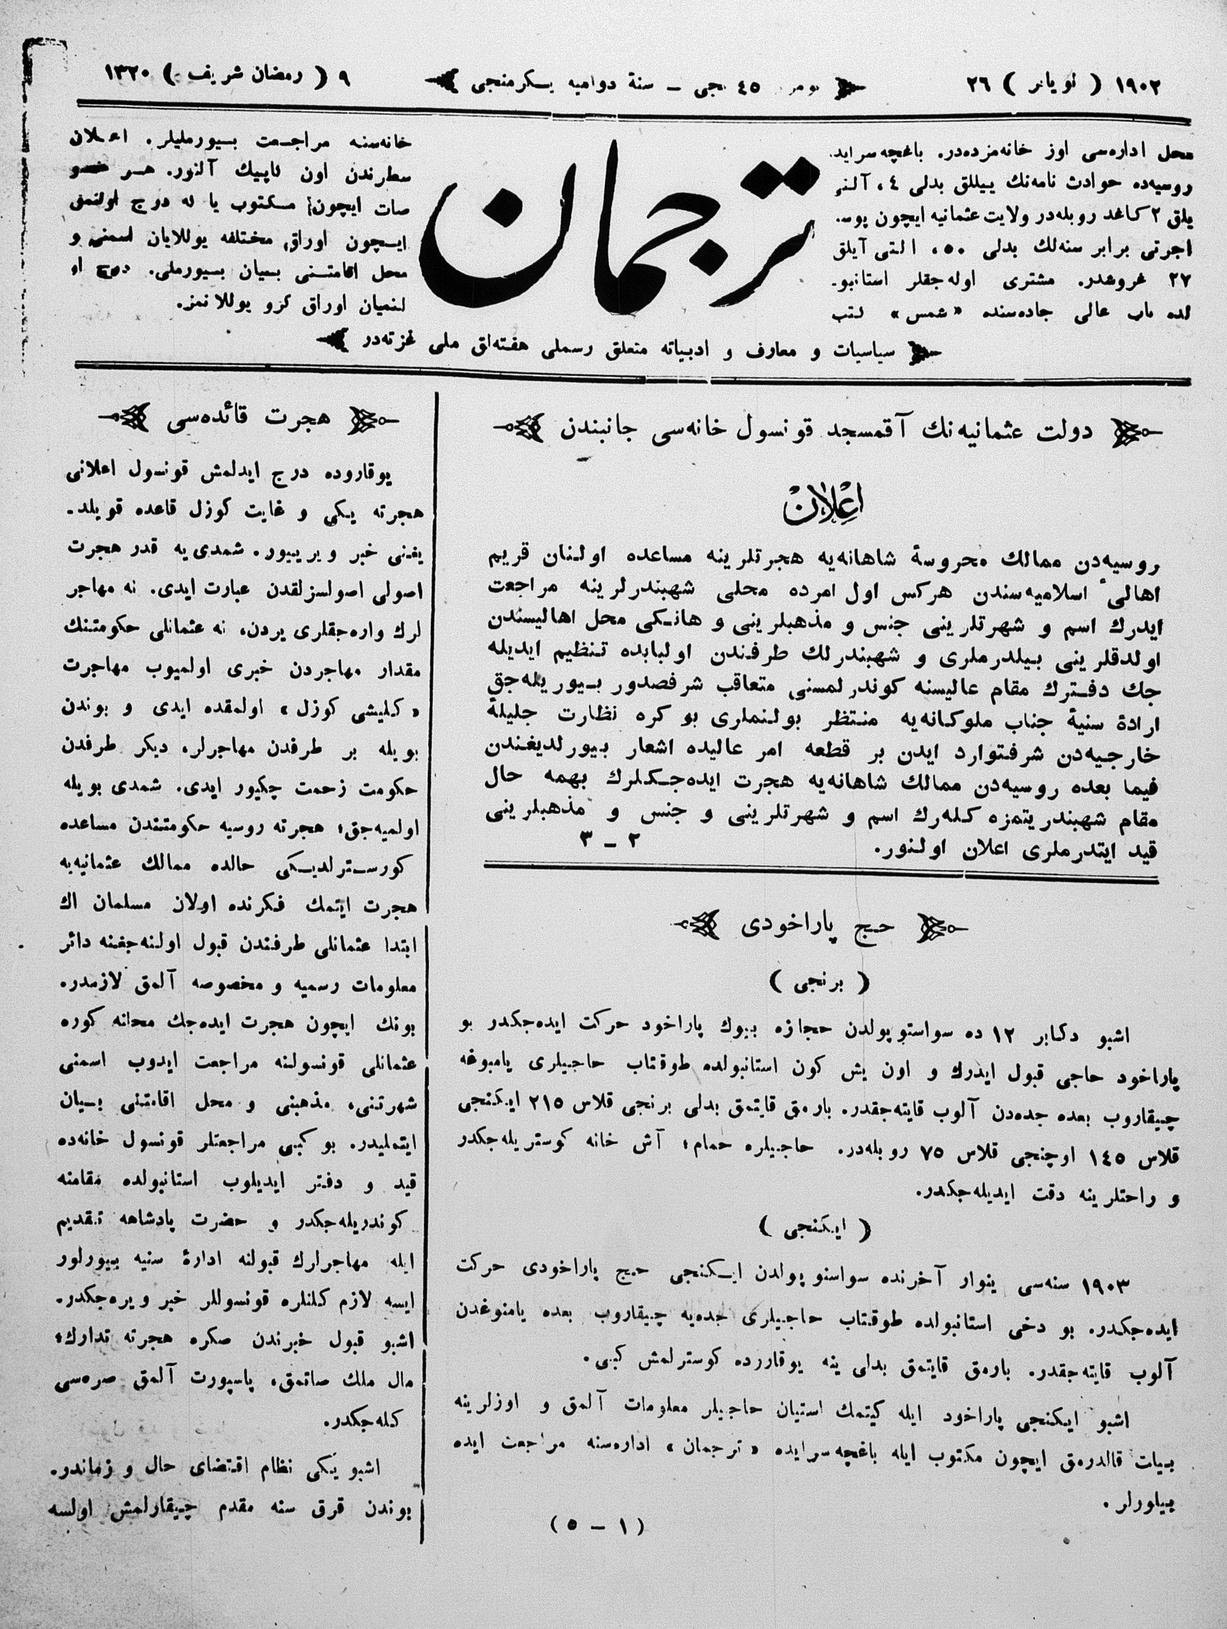 ١٩٠٢ ( نویابر ) ٢٦
نومرو ٤٥ نجی ـ سنۀ دوامیه یکرمنجی
٩ ( رمضان شریف ) ١٣٢٠
محل اداره‌سی اوز خانه‌مزده‌در. باغچه‌سرایده
روسیه‌ده حوادث نامه‌نك ییللق بدلی ٤، آلتی
یلق ٢ کاغد روبله‌در ولایت عثمانیه ایچون پوسته
اجرتی برابر سنه‌لك بدلی ٥٠، التی آیلق
٢٧ غروشدر. مشتری اوله‌جقلر استانبو-
لده باب عالی جاده‌سنده «شمس» کتب
ترجمان
خانه‌سنه مراجعت بیورملیلر. اعلان
سطرندن اون کاپیك آلنور. هر
صات ایچون؛ مکتوب یا که درج اولنمق
ایچون اوراق مختلفه یوللایان اسمنی و
محل اقامتنی بیان بیورملی. درج او
لنمیان اوراق کرو یوللانمز.
سیاسیات و معارف و ادبیاته متعلق رسملی هفته‌لق ملی غزته‌در
دولت عثمانیه‌نك آقمسجد قونسول خانه‌سی جانبندن
اعلان
روسیه‌دن ممالك محروسۀ شاهانه‌یه هجرتلرینه مساعده اولنان قریم
اهالئ اسلامیه‌سندن هرکس اول امرده محلی شهبندرلرینه مراجعت
ایدرك اسم و شهرتلرینی جنس و مذهبلرینی و هانکی محل اهالیسندن
اولدقلرینی بیلدرملری و شهبندرلك طرفندن اولبابده تنظیم ایدیله
جك دفترك مقام عالیسنه کوندرلمسنی متعاقب شرفصدور بیوریله‌جق
ارادۀ سنیۀ جناب ملوکانه‌یه منتظر بولنملری بو کره نظارت جلیلۀ
خارجیه‌دن شرفتوارد ایدن بر قطعه امر عالیده اشعار بیورلدیغندن
فیما بعده روسیه‌دن ممالك شاهانه‌یه هجرت ایده‌جکلرك بهمه حال
مقام شهبندریتمزه کله‌رك اسم و شهرتلرینی و جنس و مذهبلرینی
قید ایتدرملری اعلان اولنور.
٢ ـ ٣
حج پاراخودی
( برنجی )
اشبو دکابر ١٢ ده سواستوپولدن حجازه بیوك پاراخود حرکت ایده‌جکدر بو
پاراخود حاجی قبول ایدرك و اون بش کون استانبولده طوقتاب حاجیلری یامبوغه
چیقاروب بعده جده‌دن آلوب قایته‌جقدر. بارمق قایتمق بدلی برنجی قلاس ٢١٥ ایکنجی
قلاس ١٤٥ اوچنجی قلاس ٧٥ روبله‌در. حاجیلره حمام؛ آش خانه کوستریله‌جکدر
و راحتلرینه دقت ایدیله‌جکدر.
( ایکنجی )
١٩٠٣ سنه‌سی ینوار آخرنده سواستوپولدن ایکنجی حج پاراخودی حرکت
ایده‌جکدر. بو دخی استانبولده طوقتاب حاجیلری جده‌یه چیقاروب بعده یامبوغدن
آلوب قایته‌جقدر. بارمق قایتمق بدلی ینه یوقاررده کوسترلمش کبی.
اشبو ایکنجی پاراخود ایله کیتمك استیان حاجیلر معلومات آلمق و اوزلرینه
بیات قالدرمق ایچون مکتوب ایله باغچه‌سرایده «ترجمان» اداره‌سنه مراجعت ایده
بیلورلر.
( ١ ـ ٥ )
هجرت قائده‌سی
یوقاروده درج ایدلمش قونسول اعلانی
هجرته یکی و غایت کوزل قاعده قویلد-
یغنی خبر ویرییور. شمدی‌یه قدر هجرت
اصولی اصولسزلقدن عبارت ایدی. نه مهاجر
لرك واره‌جقلری یردن، نه عثمانلی حکومتنك
مقدار مهاجردن خبری اولمیوب مهاجرت
«کلیشی کوزل» اولمقده ایدی و بوندن
بویله بر طرفدن مهاجرلر، دیکر طرفدن
حکومت زحمت چکیور ایدی. شمدی بویله
اولمیه‌جق؛ هجرته روسیه حکومتندن مساعده
کورسترلدیکی حالده ممالك عثمانیه‌یه
هجرت ایتمك فکرنده اولان مسلمان اك
ابتدا عثمانلی طرفندن قبول اولنه‌جغنه دائر
معلومات رسمیه و مخصوصه آلمق لازمدر.
بونك ایچون هجرت ایده‌جك محلنه کوره
عثمانلی قونسولنه مراجعت ایدوب اسمنی
شهرتنی، مذهبنی و محل اقامتنی بیان
ایتملیدر. بو کبی مراجعتلر قونسول خانه‌ده
قید و دفتر ایدیلوب استانبولده مقامنه
کوندریله‌جکدر و حضرت پادشاهه تقدیم
ایله مهاجرلرك قبولنه ادارۀ سنیه بیورلور
ایسه لازم کلنلره قونسوللر خبر ویره‌جکدر.
اشبو قبول خبرندن صکره هجرته تدارك؛
مال ملك صاتمق، پاسپورت آلمق صره‌سی
کله‌جکدر.
اشبو یکی نظام اقتضای حال و زماندر.
بوندن قرق سنه مقدم چیقارلمش اولسه